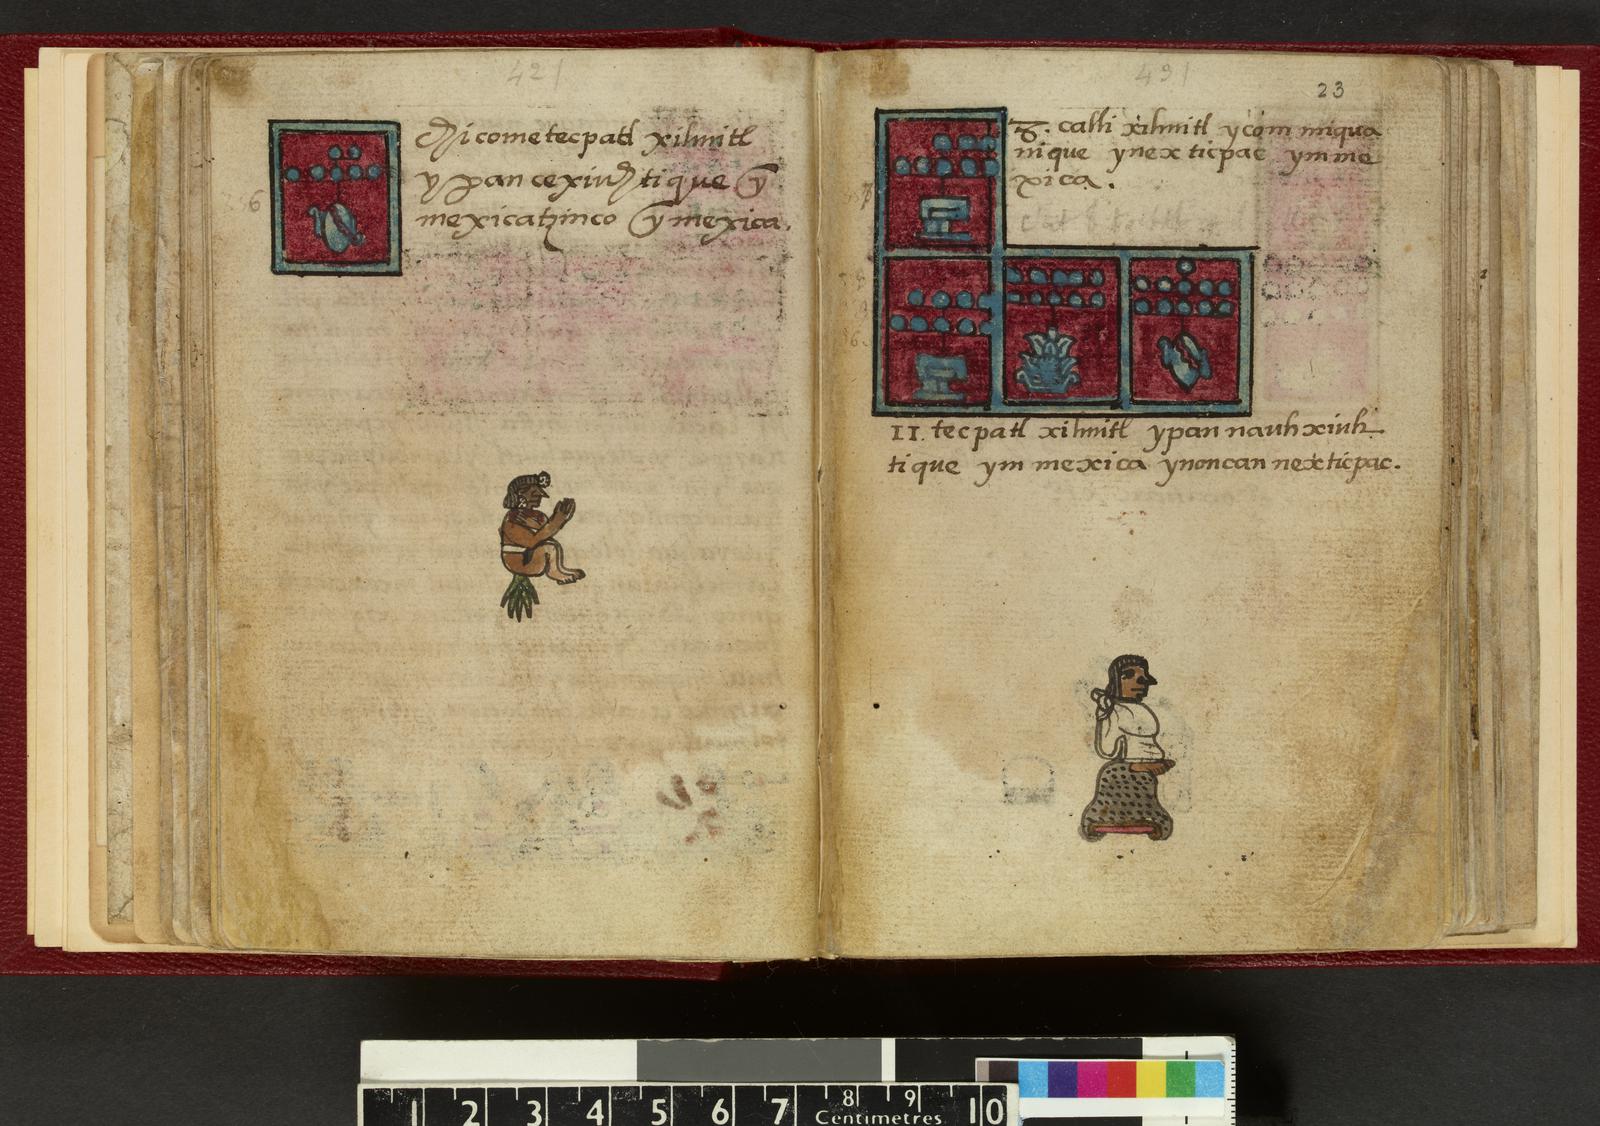 421
chicome tecpatl xihuitl
ypan ce xiuhtique yn
mexicatzinco yn mexica.
6
431
23
8. calli xihuitl ycom miqua
nique ynexticpac ymme
xica.
11. tecpatl xihuitl ypan nauhxiuh
tique ym mexica ynoncan nexticpac.
1 2 3 4 5 6 7 8 9 10
Centimetres